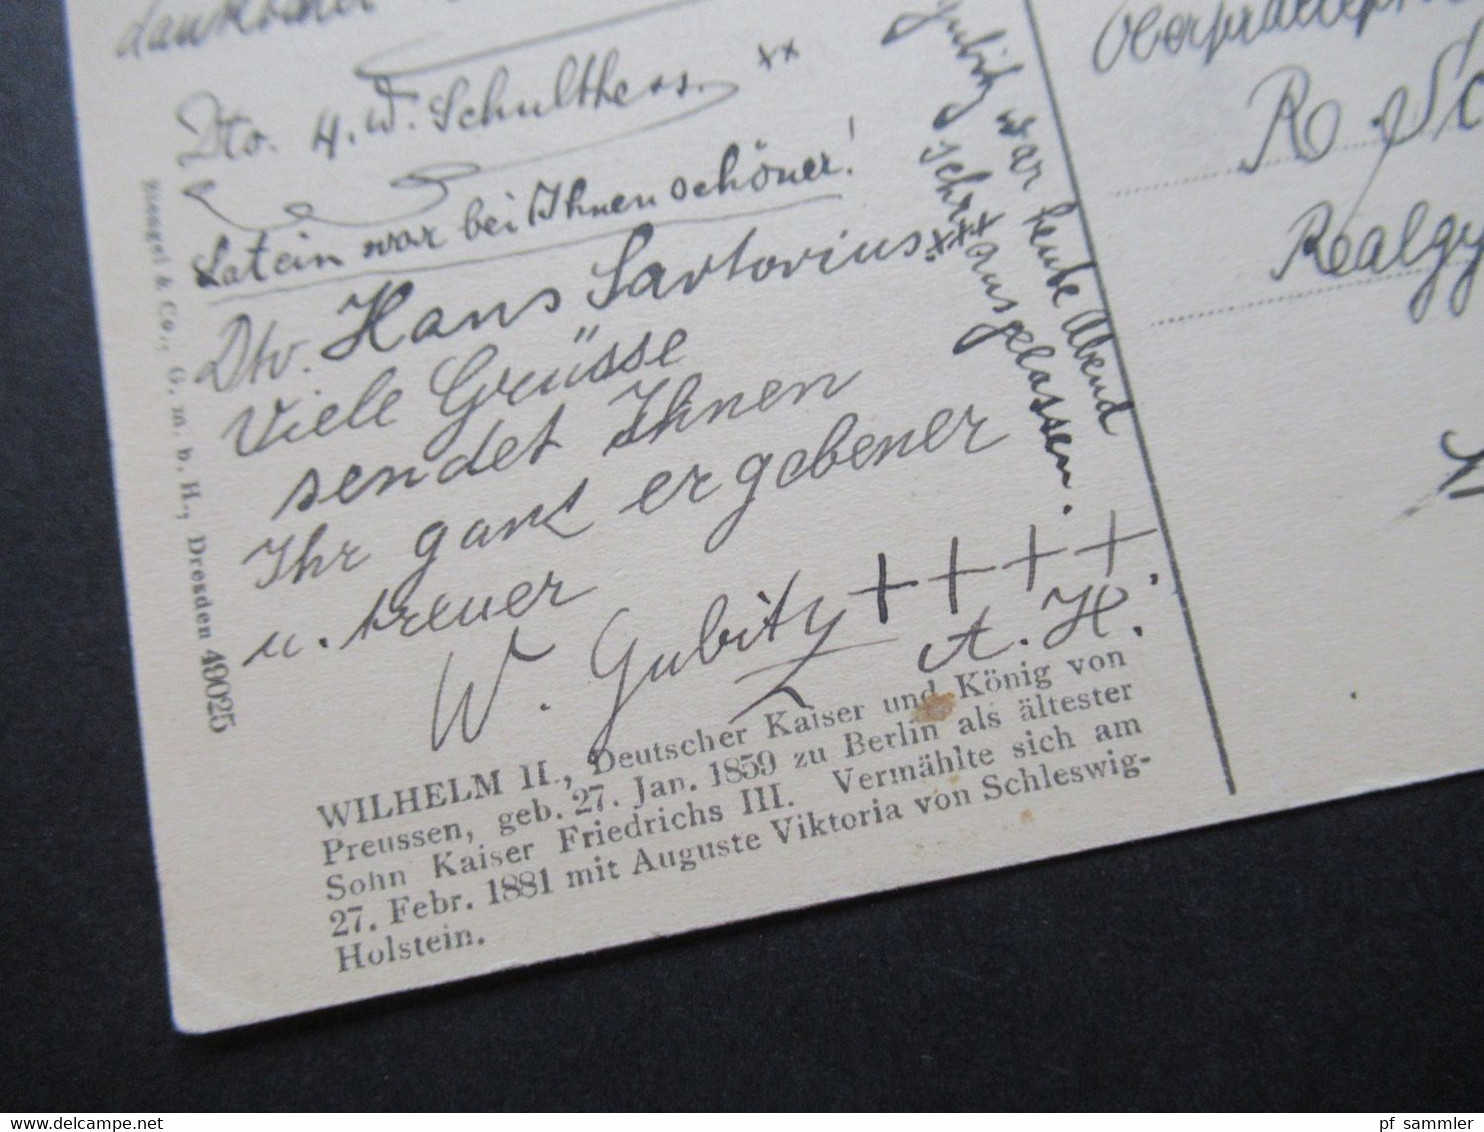 dankbarer
Dto. H. W. Schulthess. ××
Latein war bei Ihnen schöner!
Dto. Hans Sartorius ×××
Viele Grüsse
sendet Ihnen
Ihr ganz ergebener
u. treuer
W. Gubitz ++++
A. H.
Gubitz war heute Abend
sehr ausgelassen.
R. Sc
Realgy
Stengel & Co., G. m. b. H., Dresden 49025
WILHELM II., Deutscher Kaiser und König von
Preussen, geb. 27. Jan. 1859 zu Berlin als ältester
Sohn Kaiser Friedrichs III. Vermählte sich am
27. Febr. 1881 mit Auguste Viktoria von Schleswig-
Holstein.
pf sammler
delcampe.net